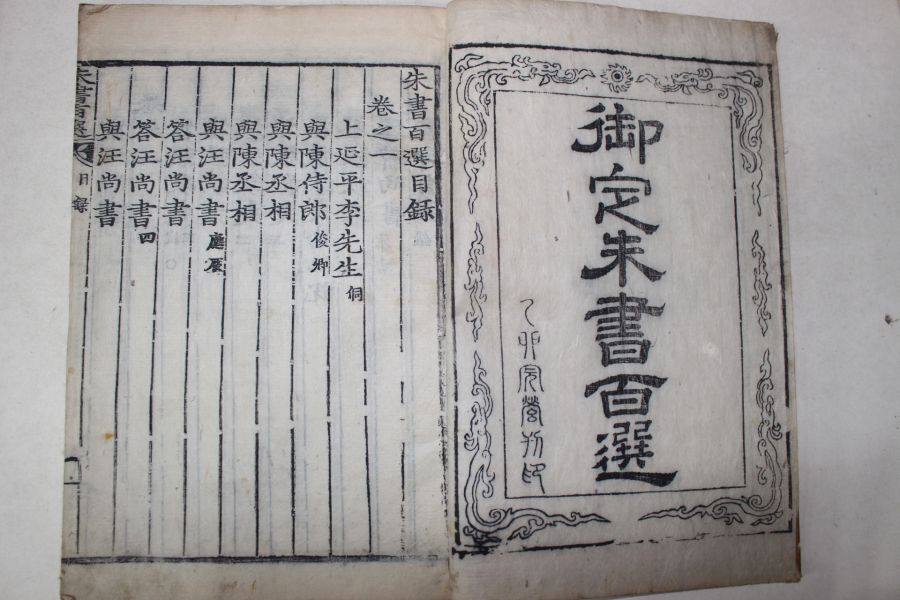 御定朱書百選
乙卯完營刊印
朱書百選目錄
卷之一
上延平李先生侗
與陳侍郎俊卿
與陳丞相
與陳丞相
與汪尚書應辰
答汪尚書
答汪尚書四
與汪尚書
朱書百選 目錄